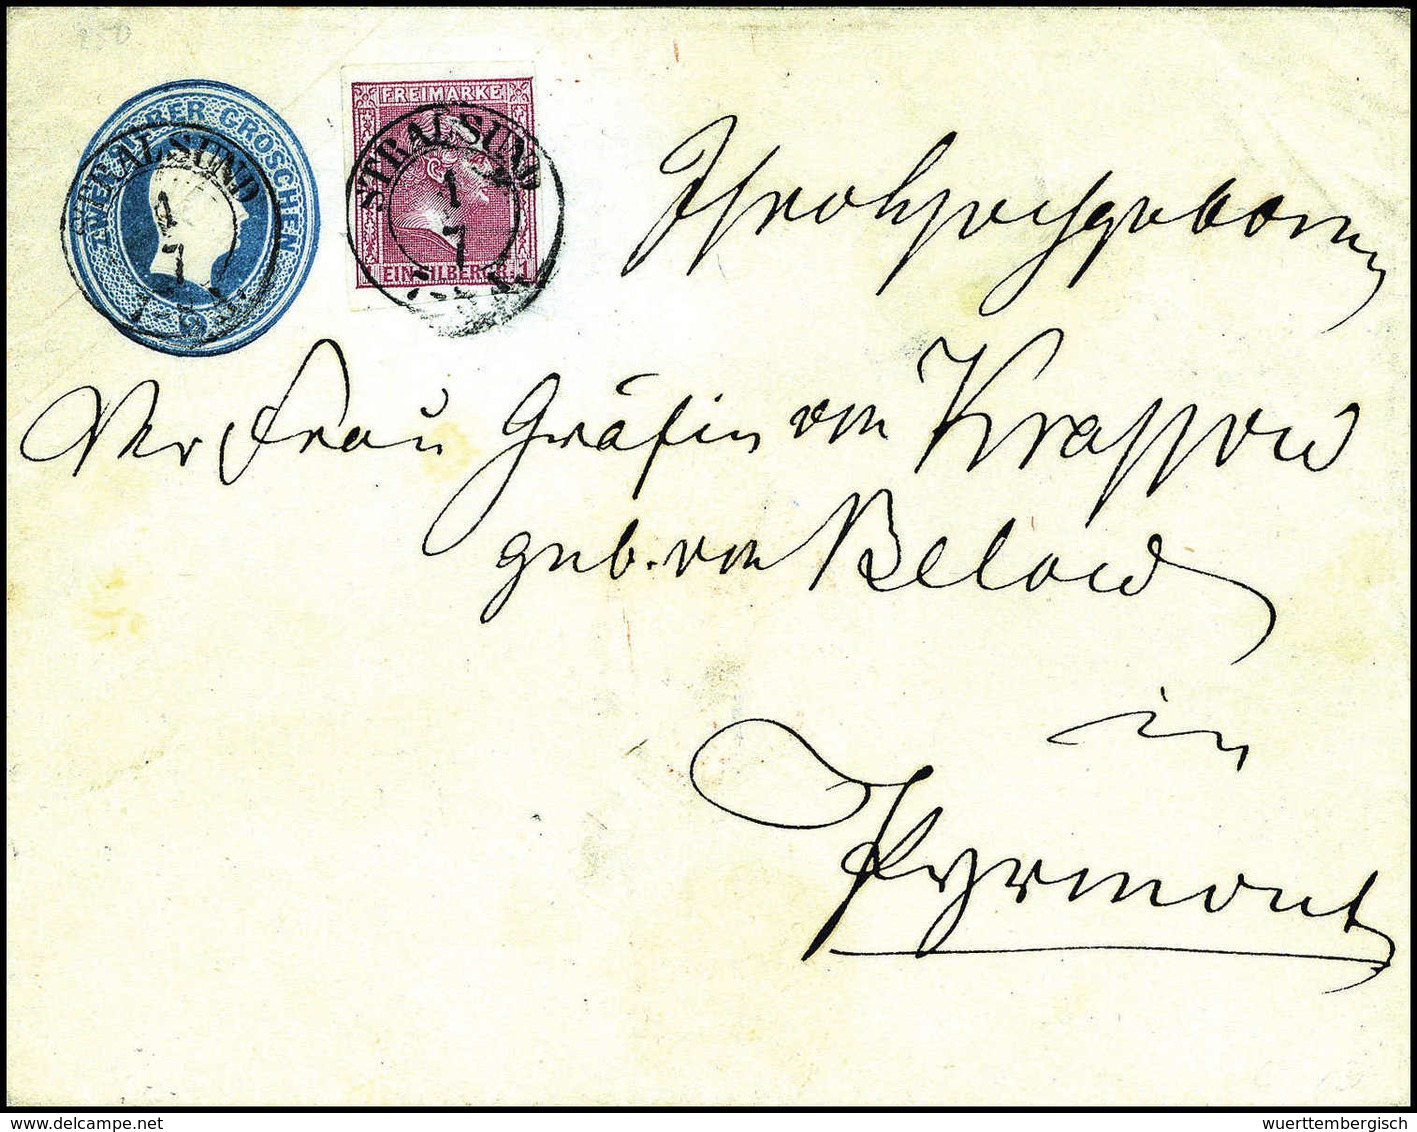 250
ZWEI SILBER GROSCHEN
STRALSUND
1
7
2
FREIMARKE
STRALSUND
1
7
EIN SILBERGR. 1
Ihro Hochgeboren
Der Frau Gräfin von Krassow
geb. von Below
in
Pyrmont
wuerttembergisch